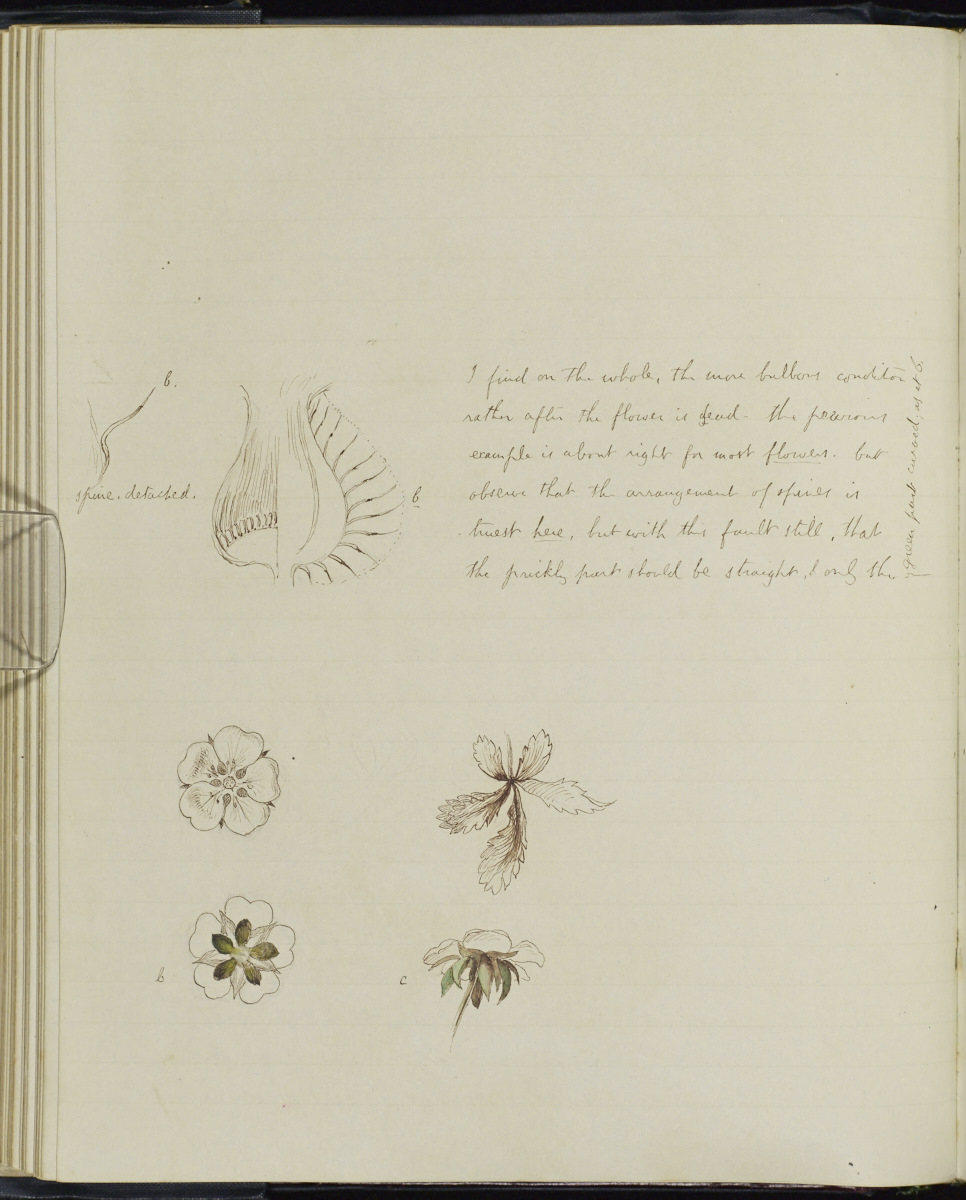 b.
spine. detached.
b
I find on the whole, the more bulbous condition
rather after the flower is dead - the previous
example is about right for most flowers. but
observe that the arrangement of spines is
truest here, but with this fault still, that
the prickly part should be straight, & only the
green part curved, as at b.
b
c